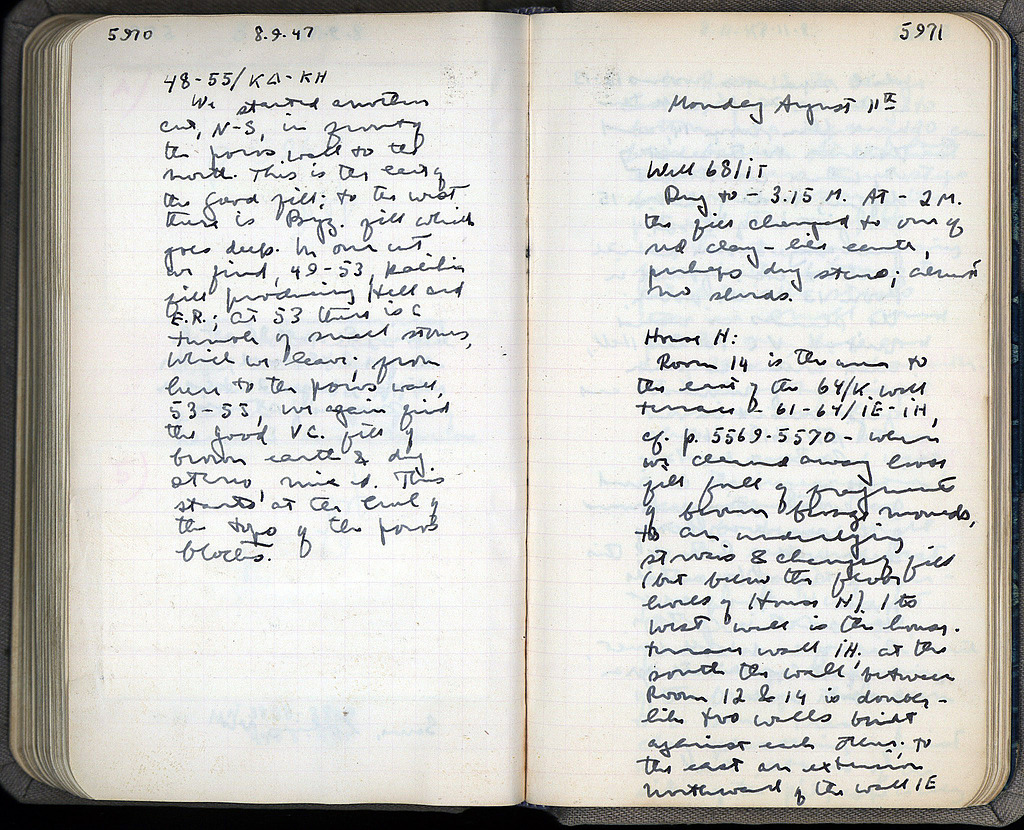 5970 8.9.47
48-55/ΚΔ-ΚΗ
We started another
cut, N-S, in front of
the poros wall to the
north. This is the edge of
the good fill; to the west
there is Byz. fill which
goes deep. In our cut
we find, 49-53,
fill producing Hell and
E.R.; at 53 there is a
tumble of small stones,
which we leave; from
here to the poros wall,
53-55, we again find
the good V C. fill of
brown earth & dug
stereo, mixed. This
starts at the level of
the top of the poros
blocks.
5971
Monday August 11th
Well 68/ΙΤ
Dug to - 3.15 M. At - 2 M.
the fill changed to one of
red clay-like earth,
perhaps dug stereo; almost
no sherds.
House H:
Room 14 is the area to
the east of the 64/Κ well
terrace - 61-64/ΙΕ-ΙΗ,
cf. p. 5569-5570 - where
we cleared away loose
fill full of fragments
of bronze moulds,
to an underlying
stereo & changed fill
(but below the floor
levels of House H). The
west wall is the house-
terrace wall ΙΗ; at the
south the wall between
Room 12 & 14 is double -
like two walls built
against each other; to
the east an extension
northward of the wall ΙΕ